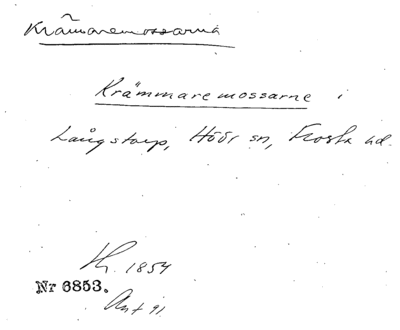 Krämaremossarna
Krämmaremossarne i
Långstorp, Höör sn, Frosta hd.
Lh. 1854
Nr 6853.
Ant 91